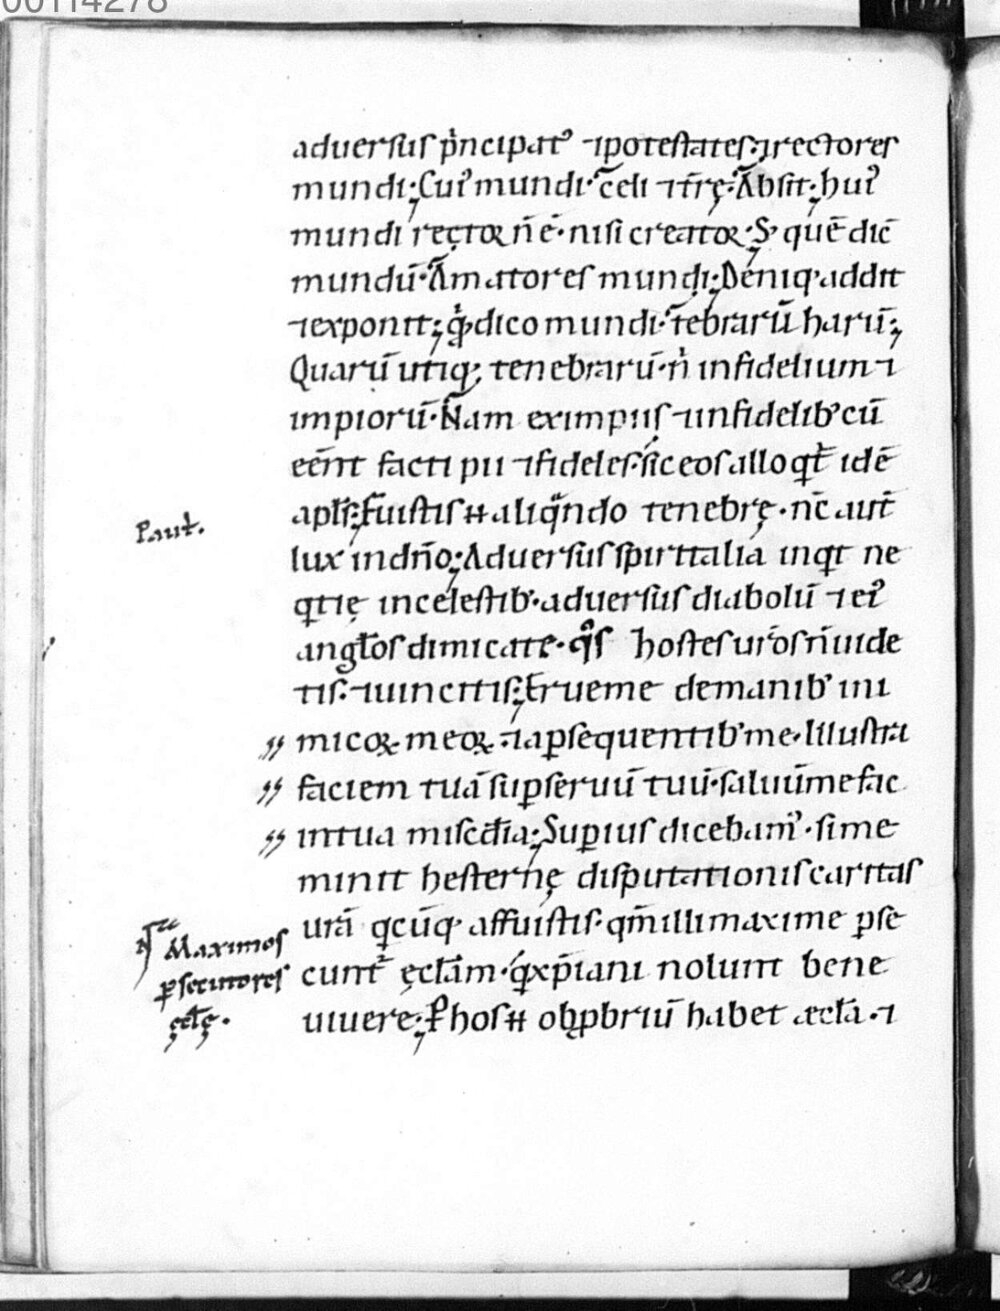 00114278
aduersus p̍ncipatꝰ ⁊ potestates; ⁊ rectores
mundi; Cuiꝰ mundi· c̄eli ⁊ tr̄ę· Absit; huiꝰ
mundi rector n̄ ē· nisi creator· S; quē dic̄
mundū· Amatores mundi; Deniq; addit
⁊ exponit; q̍ dico mundi· tebrarū harū;
Quarū utiq; tenebrarū· n̍ infidelium ⁊
impiorū· Nam ex impiis ⁊ infidelib; cū
eēnt facti pii ⁊ fideles· sic eos alloqt̄ idē
apl̄s; Fuistis н aliqndo tenebrę· nc̄ aut̄
Paul.
lux in dn̄o; Aduersus spiritalia inqt ne
qtię in celestib;· aduersus diabolū ⁊ eiꝰ
angl̄os dimicate· qͦs hostes ur̄os n̄ uide
tis· ⁊ uincitis; Erue me de manib; ini
micoꝝ meoꝝ ⁊ a ꝑsequentib; me· Illustra
faciem tuā suꝑ seruū tuū· saluū me fac
in tua misc̄dia; Superius dicebamꝰ· si me
minit hesternę disputationis caritas
ur̄a qcūq; affuistis· qm̄ illi maxime ꝑse
Nͣ Maximos
ꝑsecutores
ęcl̄ę·
cunt̄ ęcl̄am· q̍ xp̄iani nolunt bene
uiuere; P hos н obꝓbriū habet æcl̄a· ⁊